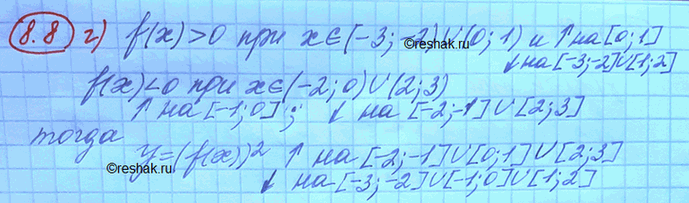 8.8 г) f(x)>0 при x∈(-3;-2)∪(0;1) и ↑ на [0;1]
↓ на [-3;-2]∪[1;2]
f(x)<0 при x∈(-2;0)∪(2;3)
↑ на [-1;0]; ↓ на [-2;-1]∪[2;3]
тогда
y=(f(x))² ↑ на [-2;-1]∪[0;1]∪[2;3]
↓ на [-3;-2]∪[-1;0]∪[1;2]
©reshak.ru
©reshak.ru